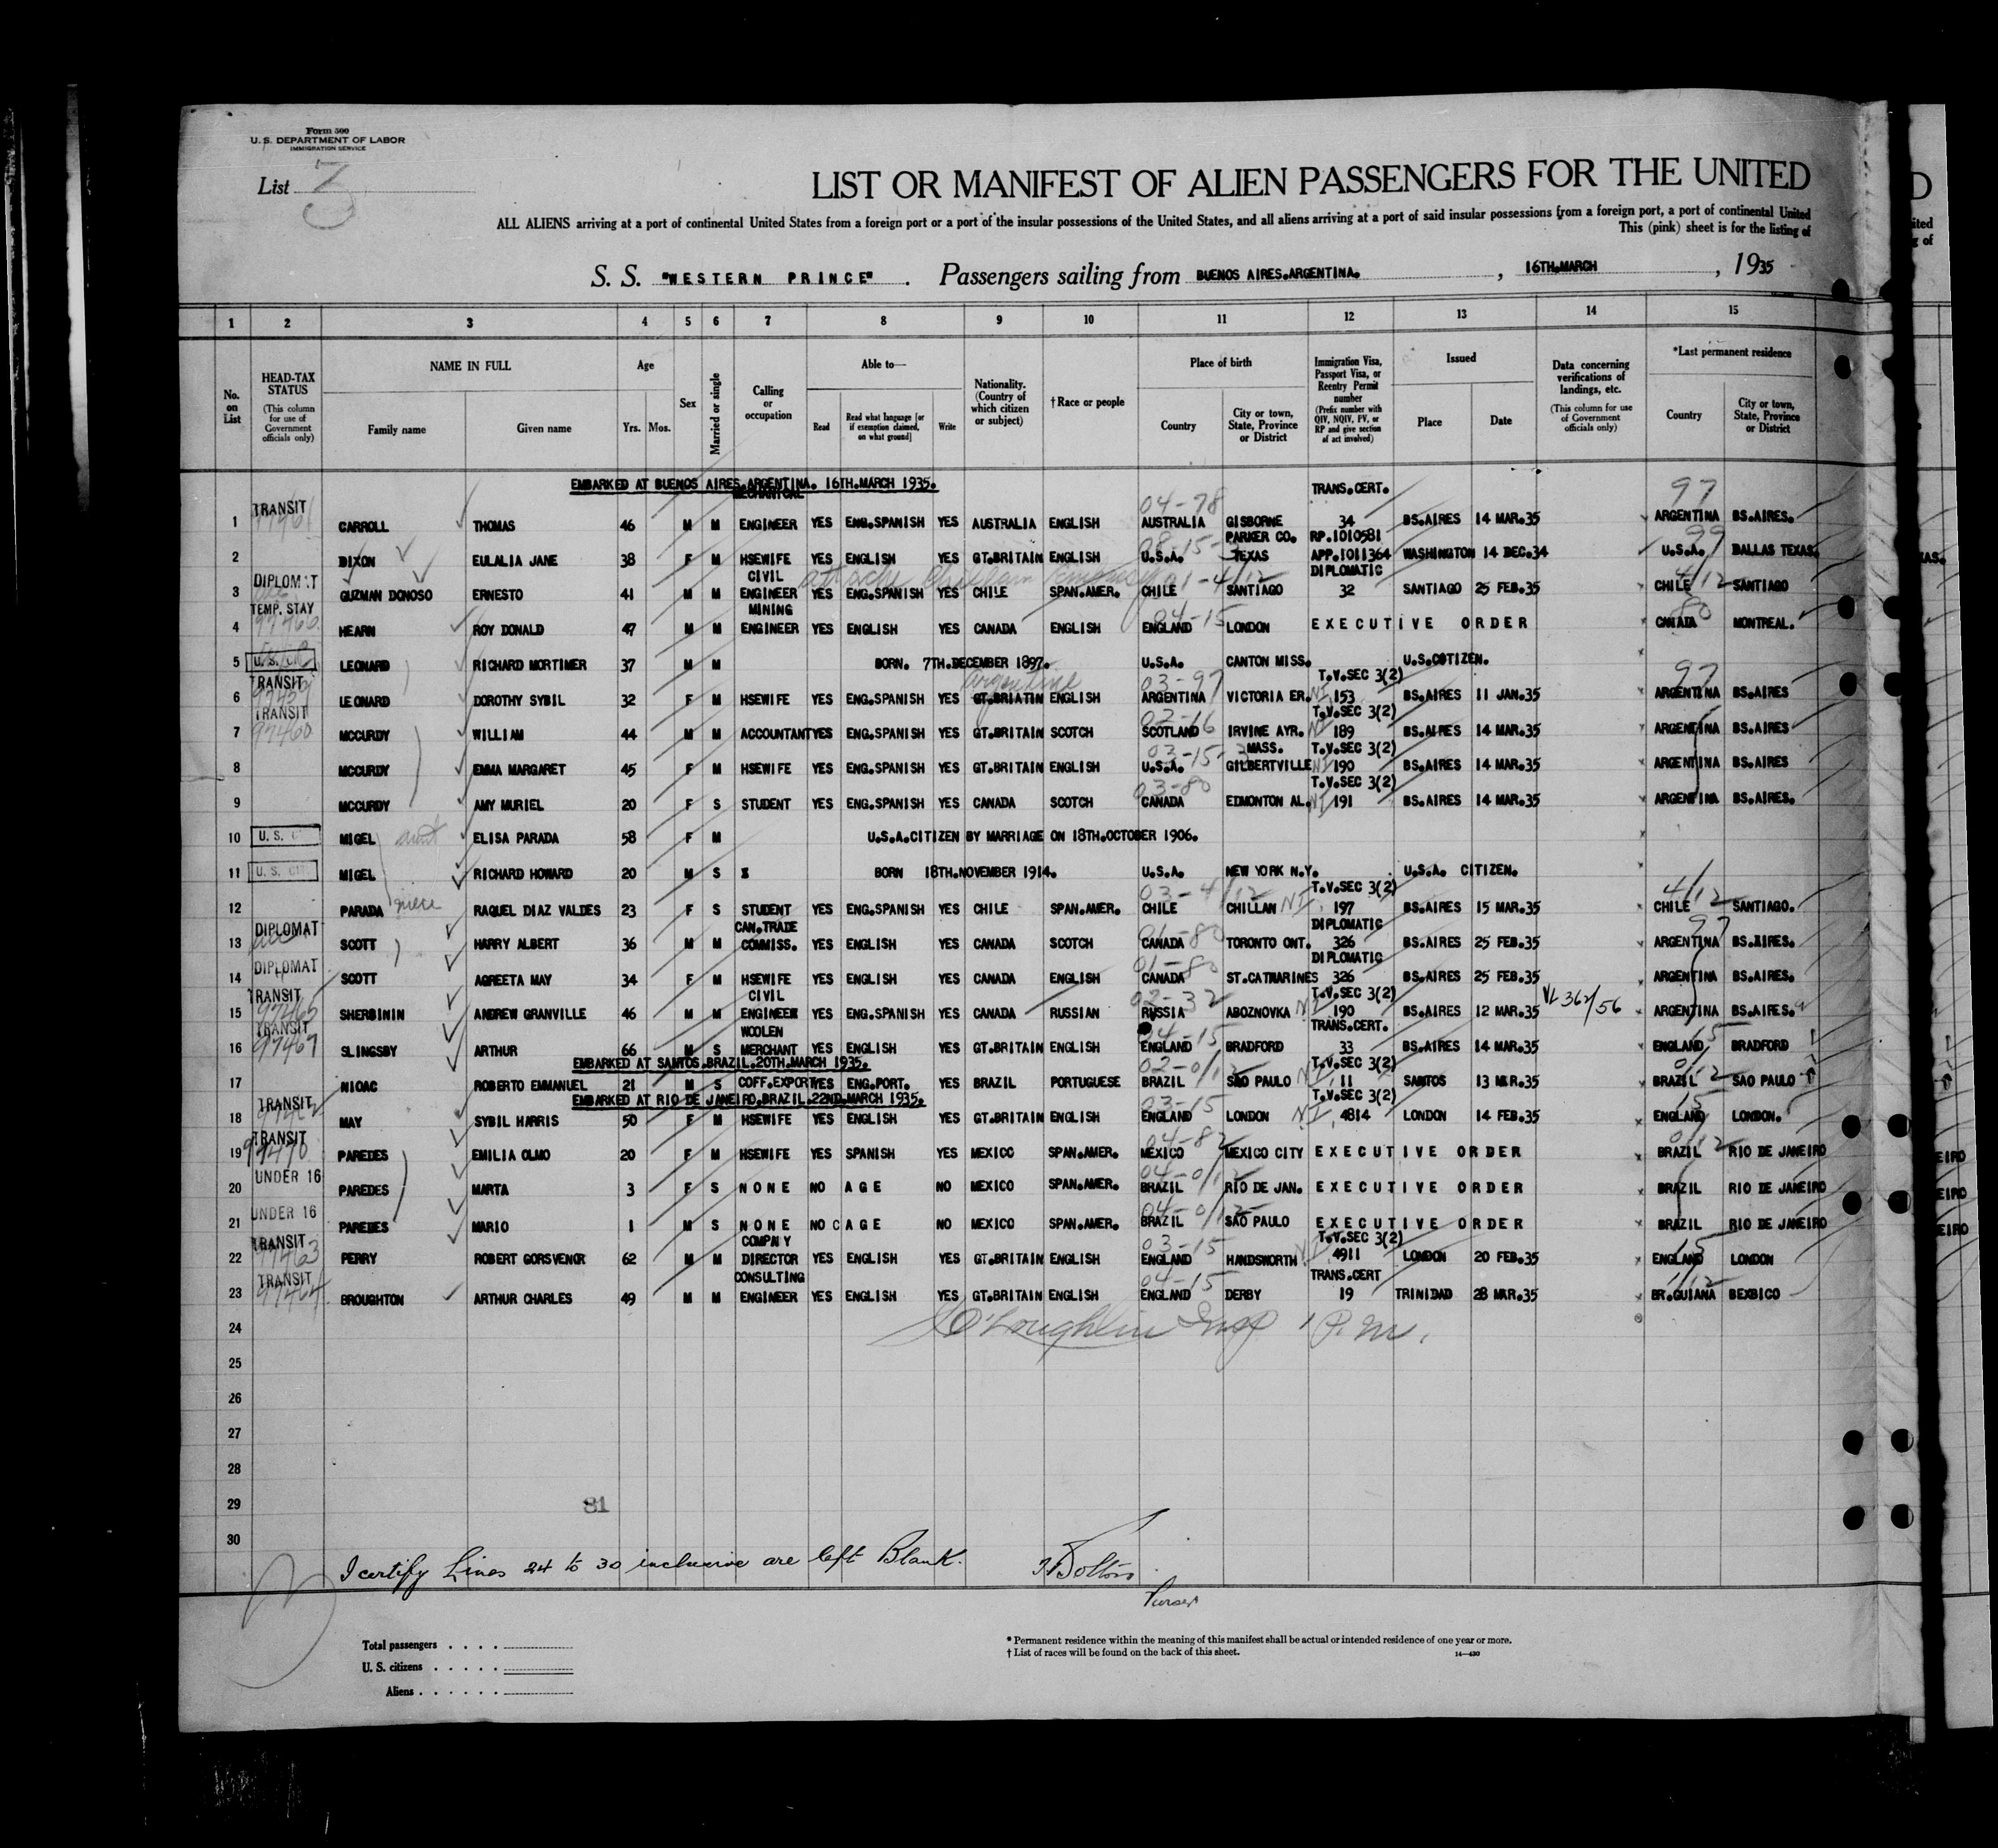 Form 500
U. S. DEPARTMENT OF LABOR
IMMIGRATION SERVICE
List 3
LIST OR MANIFEST OF ALIEN PASSENGERS FOR THE UNITED
ALL ALIENS arriving at a port of continental United States from a foreign port or a port of the insular possessions of the United States, and all aliens arriving at a port of said insular possessions from a foreign port, a port of continental United
This (pink) sheet is for the listing of
S. S. "WESTERN PRINCE". Passengers sailing from BUENOS AIRES.ARGENTINA. , 16TH.MARCH , 1935
1 2 3 4 5 6 7 8 9 10 11 12 13 14 15
No. on List
HEAD-TAX STATUS (This column for use of Government officials only)
NAME IN FULL Family name Given name
Age Yrs. Mos.
Sex
Married or single
Calling or occupation
Able to— Read Read what language [or if exemption claimed, on what ground] Write
Nationality. (Country of which citizen or subject)
†Race or people
Place of birth Country City or town, State, Province or District
Immigration Visa, Passport Visa, or Reentry Permit number (Prefix number with QIV, NQIV, PV, or RP and give section of act involved)
Issued Place Date
Data concerning verifications of landings, etc. (This column for use of Government officials only)
*Last permanent residence Country City or town, State, Province or District
EMBARKED AT BUENOS AIRES.ARGENTINA. 16TH.MARCH 1935.
TRANSIT MECHANICAL TRANS.CERT. 04-78 97
1 CARROLL THOMAS 46 M M ENGINEER YES ENG.SPANISH YES AUSTRALIA ENGLISH AUSTRALIA GISBORNE 34 BS.AIRES 14 MAR.35 ARGENTINA BS.AIRES.
PARKER CO. RP.1010581
2 DIXON EULALIA JANE 38 F M HSEWIFE YES ENGLISH YES GT.BRITAIN ENGLISH U.S.A. TEXAS APP.1011364 WASHINGTON 14 DEC.34 U.S.A. DALLAS TEXAS.
DIPLOMAT CIVIL attache DIPLOMATIC 01-4/12 4/12
3 GUZMAN DONOSO ERNESTO 41 M M ENGINEER YES ENG.SPANISH YES CHILE SPAN.AMER. CHILE SANTIAGO 32 SANTIAGO 25 FEB.35 CHILE SANTIAGO
TEMP. STAY MINING 04-15 80
4 HEARN ROY DONALD 47 M M ENGINEER YES ENGLISH YES CANADA ENGLISH ENGLAND LONDON EXECUTIVE ORDER CANADA MONTREAL.
5 U.S. CIT LEONARD RICHARD MORTIMER 37 M M BORN. 7TH.DECEMBER 1897. U.S.A. CANTON MISS. U.S.CITIZEN.
TRANSIT Argentine 03-97 T.V.SEC 3(2) 97
6 LEONARD DOROTHY SYBIL 32 F M HSEWIFE YES ENG.SPANISH YES GT.BRIATIN ENGLISH ARGENTINA VICTORIA ER. NI 153 BS.AIRES 11 JAN.35 ARGENTINA BS.AIRES
TRANSIT 97460 T.V.SEC 3(2)
7 MCCURDY WILLIAM 44 M M ACCOUNTANT YES ENG.SPANISH YES GT.BRITAIN SCOTCH SCOTLAND IRVINE AYR. 189 BS.AIRES 14 MAR.35 ARGENTINA BS.AIRES
03-15 MASS. T.V.SEC 3(2)
8 MCCURDY EMMA MARGARET 45 F M HSEWIFE YES ENG.SPANISH YES GT.BRITAIN ENGLISH U.S.A. GILBERTVILLE 190 BS.AIRES 14 MAR.35 ARGENTINA BS.AIRES
03-80 T.V.SEC 3(2)
9 MCCURDY AMY MURIEL 20 F S STUDENT YES ENG.SPANISH YES CANADA SCOTCH CANADA EDMONTON AL. 191 BS.AIRES 14 MAR.35 ARGENTINA BS.AIRES.
10 U.S. C MIGEL aunt ELISA PARADA 58 F M U.S.A.CITIZEN BY MARRIAGE ON 18TH.OCTOBER 1906.
11 U.S. CIT MIGEL RICHARD HOWARD 20 M S X BORN 18TH.NOVEMBER 1914. U.S.A. NEW YORK N.Y. U.S.A. CITIZEN.
03-4/12 T.V.SEC 3(2) 4/12
12 PARADA niece RAQUEL DIAZ VALDES 23 F S STUDENT YES ENG.SPANISH YES CHILE SPAN.AMER. CHILE CHILLAN NI 197 BS.AIRES 15 MAR.35 CHILE SANTIAGO.
DIPLOMAT CAN.TRADE 01-80 DIPLOMATIC 97
13 SCOTT HARRY ALBERT 36 M M COMMISS. YES ENGLISH YES CANADA SCOTCH CANADA TORONTO ONT. 326 BS.AIRES 25 FEB.35 ARGENTINA BS.AIRES.
DIPLOMAT 01-80 DIPLOMATIC
14 SCOTT AGREETA MAY 34 F M HSEWIFE YES ENGLISH YES CANADA ENGLISH CANADA ST.CATHARINES 326 BS.AIRES 25 FEB.35 ARGENTINA BS.AIRES.
TRANSIT 97465 CIVIL 02-32 T.V.SEC 3(2) VL 362/56
15 SHERBININ ANDREW GRANVILLE 46 M M ENGINEER YES ENG.SPANISH YES CANADA RUSSIAN RUSSIA ABOZNOVKA NI 190 BS.AIRES 12 MAR.35 ARGENTINA BS.AIRES.
TRANSIT 97467 WOOLEN 04-15 TRANS.CERT. 15
16 SLINGSBY ARTHUR 66 M S MERCHANT YES ENGLISH YES GT.BRITAIN ENGLISH ENGLAND BRADFORD 33 BS.AIRES 14 MAR.35 ENGLAND BRADFORD
EMBARKED AT SANTOS.BRAZIL.20TH.MARCH 1935. 02-0/12 T.V.SEC 3(2) 0/12
17 NIOAC ROBERTO EMMANUEL 21 M S COFF.EXPORT YES ENG.PORT. YES BRAZIL PORTUGUESE BRAZIL SAO PAULO 11 SANTOS 13 MAR.35 BRAZIL SAO PAULO
EMBARKED AT RIO DE JANEIRO.BRAZIL.22ND.MARCH 1935. TRANSIT 03-15 T.V.SEC 3(2) 15
18 MAY SYBIL HARRIS 50 F M HSEWIFE YES ENGLISH YES GT.BRITAIN ENGLISH ENGLAND LONDON NI 4814 LONDON 14 FEB.35 ENGLAND LONDON.
TRANSIT 97470 04-82 0/12
19 PAREDES EMILIA OLMO 20 F M HSEWIFE YES SPANISH YES MEXICO SPAN.AMER. MEXICO MEXICO CITY EXECUTIVE ORDER BRAZIL RIO DE JANEIRO
UNDER 16 04-0/12
20 PAREDES MARTA 3 F S NONE NO AGE NO MEXICO SPAN.AMER. BRAZIL RIO DE JAN. EXECUTIVE ORDER BRAZIL RIO DE JANEIRO
UNDER 16 04-0/12
21 PAREDES MARIO 1 M S NONE NO C AGE NO MEXICO SPAN.AMER. BRAZIL SAO PAULO EXECUTIVE ORDER BRAZIL RIO DE JANEIRO
TRANSIT 97463 COMPNY 03-15 T.V.SEC 3(2) 15
22 PERRY ROBERT GORSVENOR 62 M M DIRECTOR YES ENGLISH YES GT.BRITAIN ENGLISH ENGLAND HANDSWORTH 4911 LONDON 20 FEB.35 ENGLAND LONDON
TRANSIT 97464 CONSULTING 04-15 TRANS.CERT 1/12
23 BROUGHTON ARTHUR CHARLES 49 M M ENGINEER YES ENGLISH YES GT.BRITAIN ENGLISH ENGLAND DERBY 19 TRINIDAD 28 MAR.35 BR.GUIANA BEXBICO
24 O'Loughlin Insp 1 P.M.
25
26
27
28
29
81
30
I certify Lines 24 to 30 inclusive are left Blank. Bolton
Purser
Total passengers
U. S. citizens
Aliens
* Permanent residence within the meaning of this manifest shall be actual or intended residence of one year or more.
† List of races will be found on the back of this sheet. 14—430